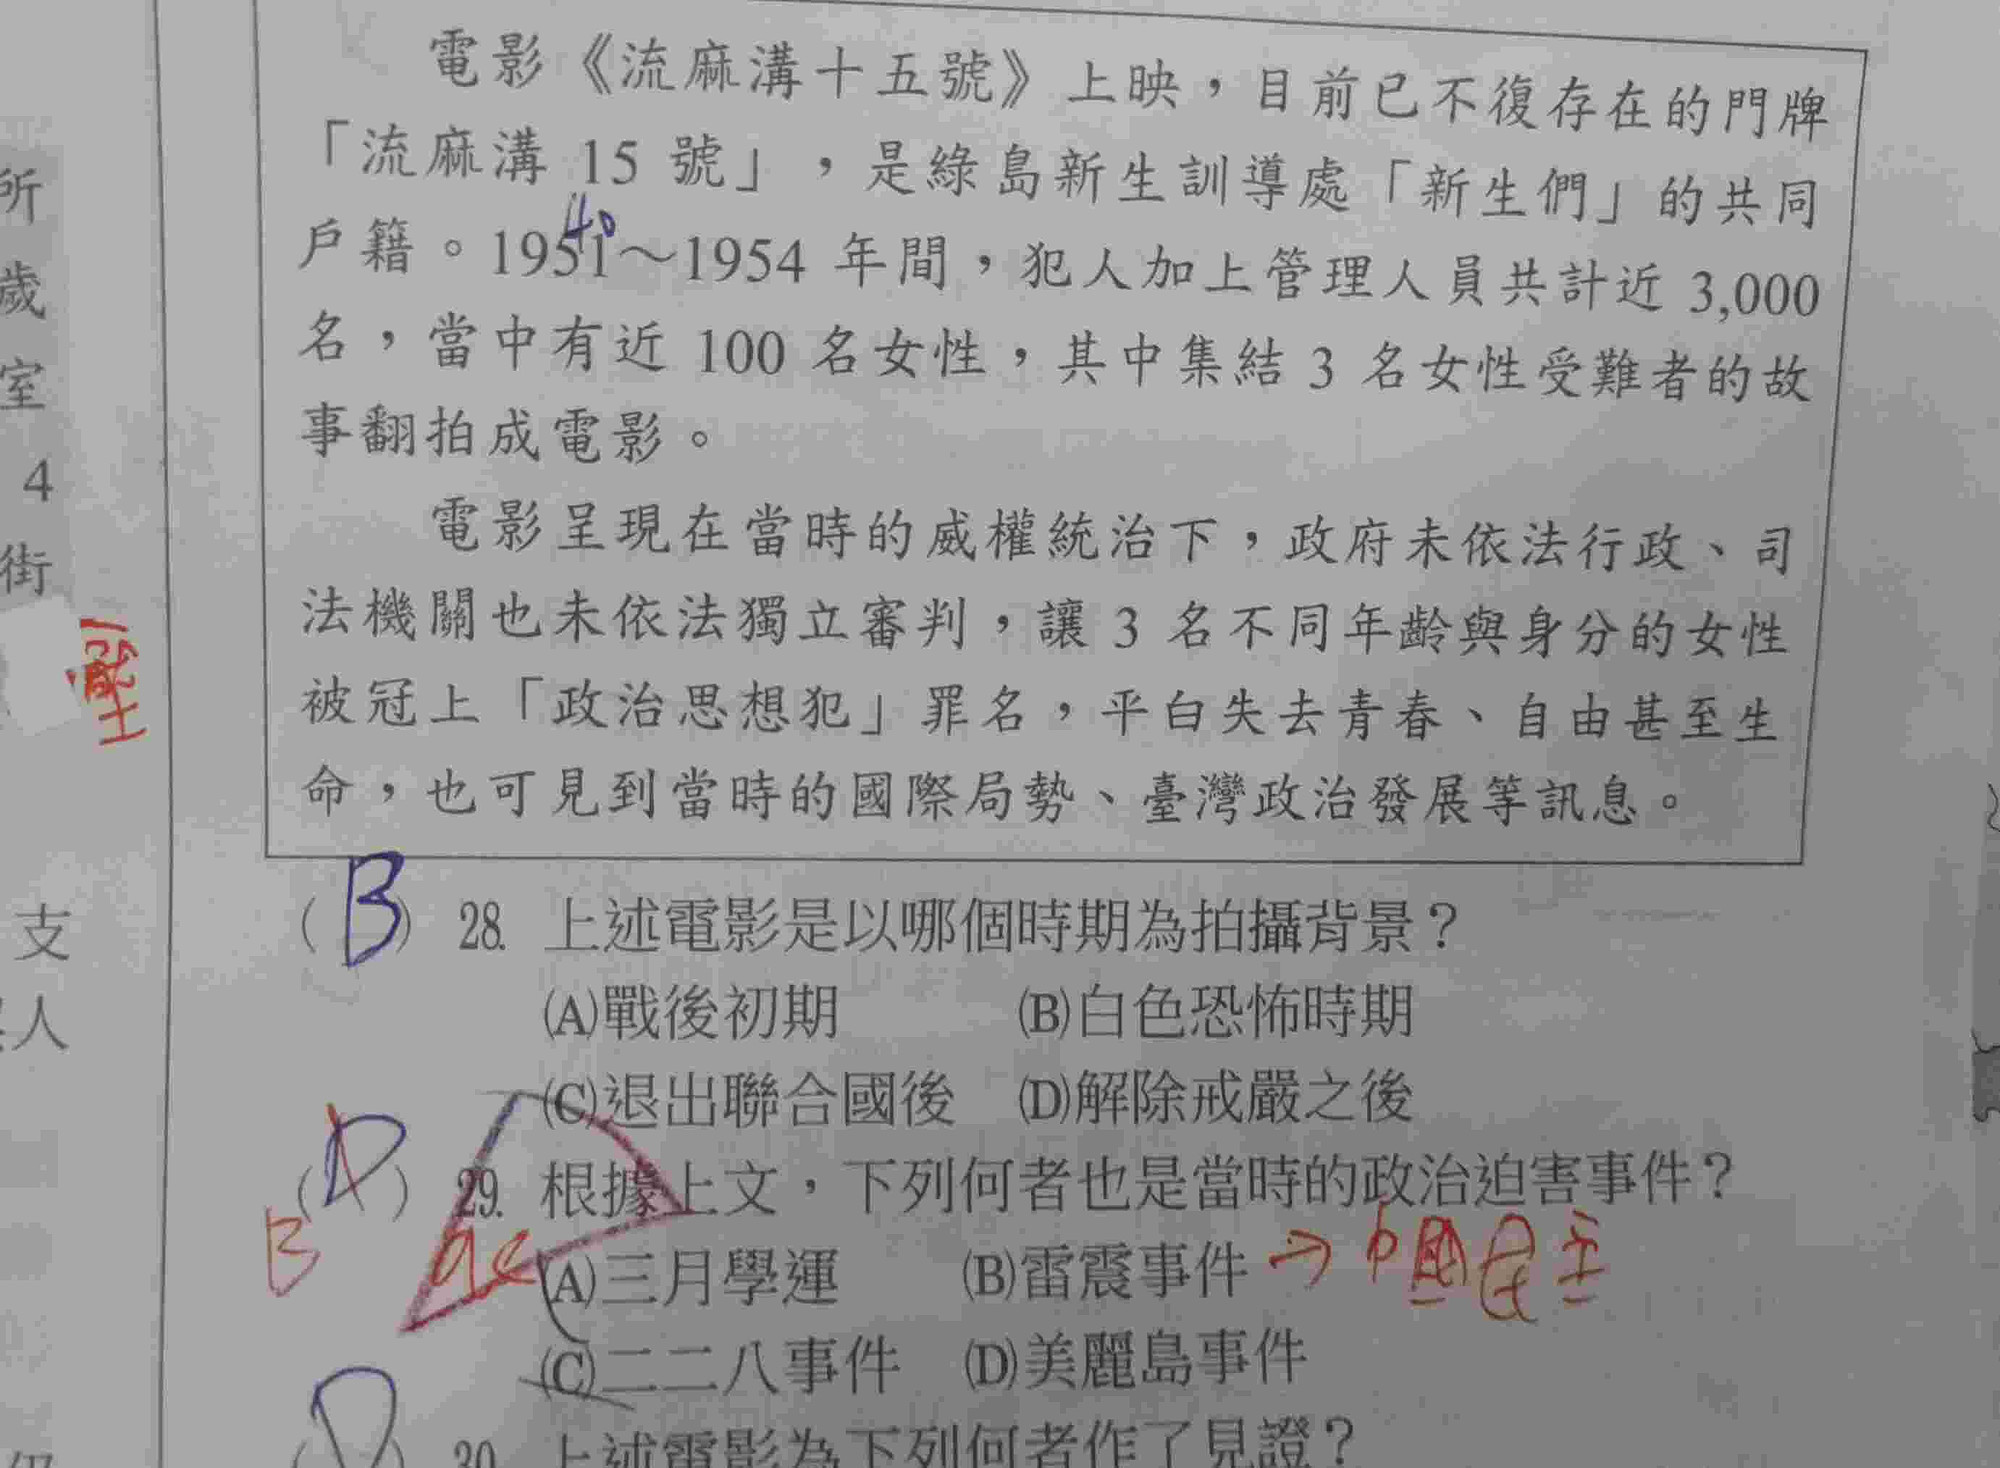 電影《流麻溝十五號》上映，目前已不復存在的門牌
「流麻溝 15 號」，是綠島新生訓導處「新生們」的共同
戶籍。1951～1954 年間，犯人加上管理人員共計近 3,000
40
名，當中有近 100 名女性，其中集結 3 名女性受難者的故
事翻拍成電影。
電影呈現在當時的威權統治下，政府未依法行政、司
法機關也未依法獨立審判，讓 3 名不同年齡與身分的女性
被冠上「政治思想犯」罪名，平白失去青春、自由甚至生
命，也可見到當時的國際局勢、臺灣政治發展等訊息。
(B) 28. 上述電影是以哪個時期為拍攝背景？
(A)戰後初期 (B)白色恐怖時期
(C)退出聯合國後 (D)解除戒嚴之後
(D) 29. 根據上文，下列何者也是當時的政治迫害事件？
B
(A)三月學運 (B)雷震事件 → 中國民主
(C)二二八事件 (D)美麗島事件
(D) 30. 上述電影為下列何者作了見證？
所
歲
室
4
街
支
人